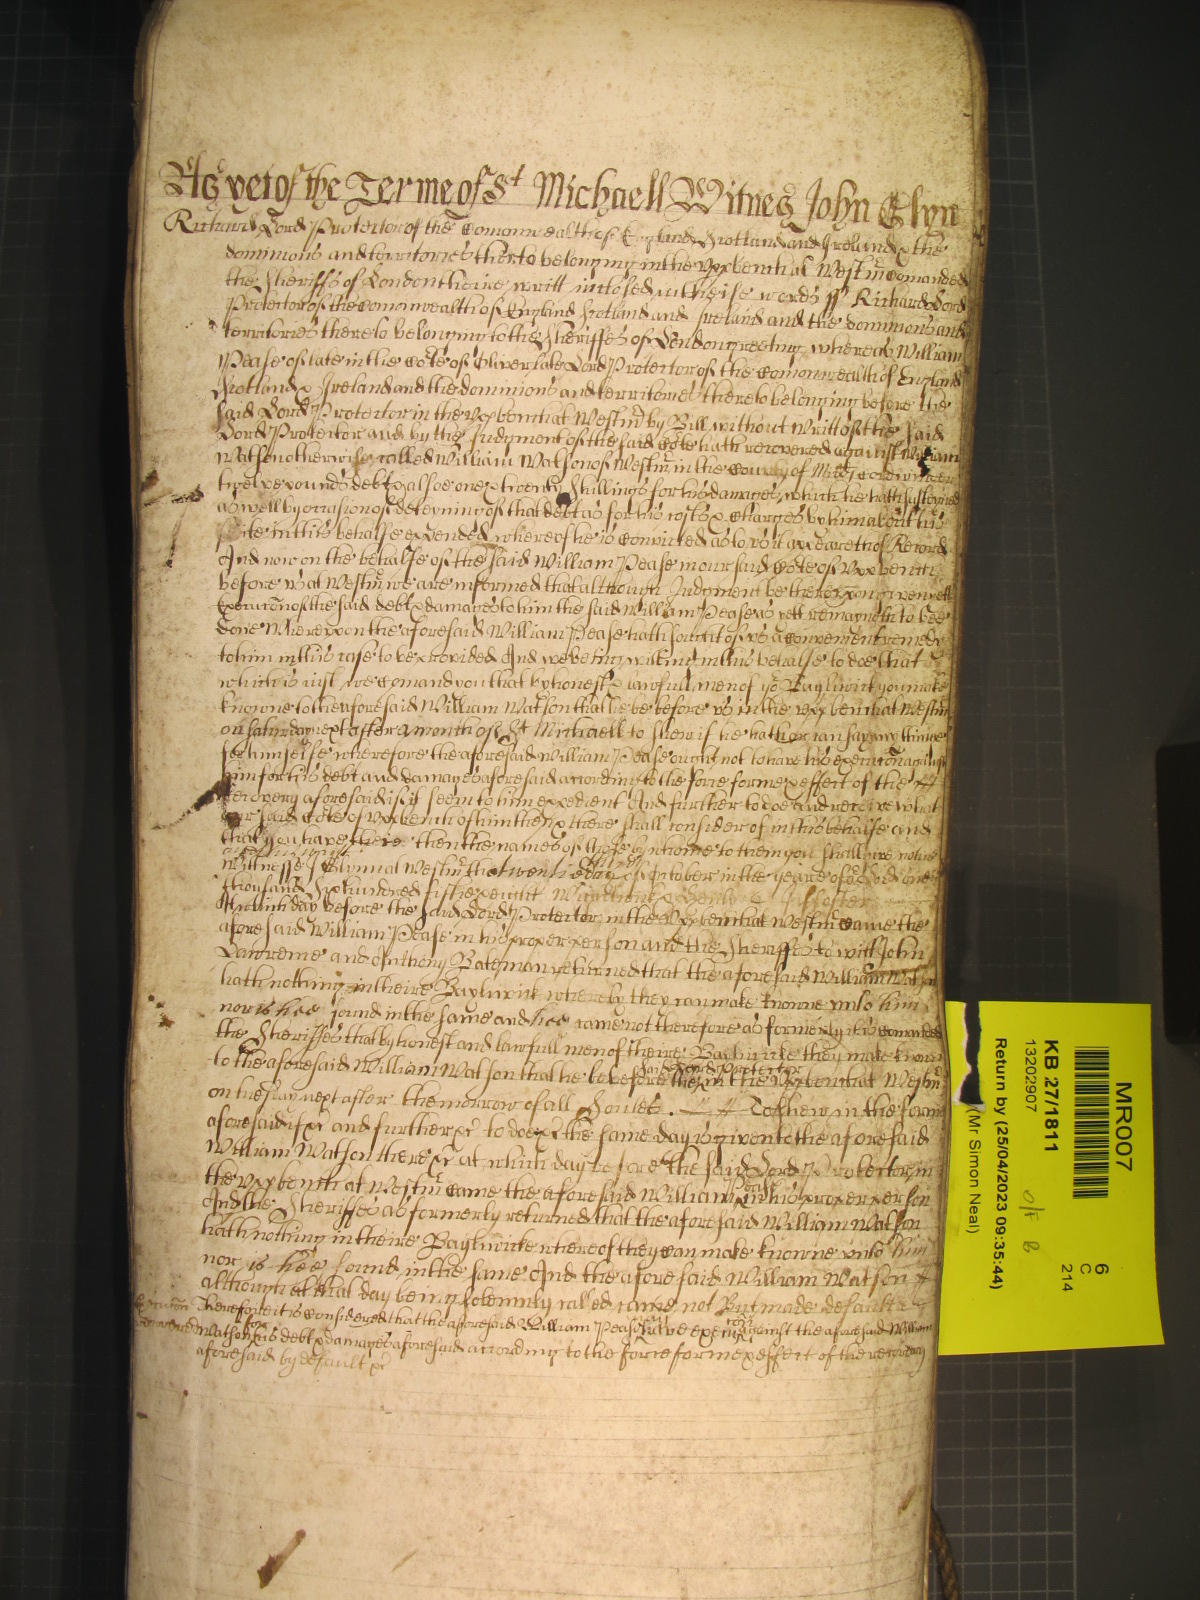 As yet of the Terme of St Michaell Witnes John Glyn
Richard Lord Protector of the Comonwealth of England Scotland and Ireland & the
dominions and territories therto belonging in the upp bench at Westm comanded
the Sheriffs of London theire writt inclosed in theise words ss Richard Lord
Protector of the Comonwealth of England Scotland and Ireland and the dominions and
territories thereto belonging to the Sheriffes of London greeting whereas William
Pease of late in the Cote of Oliver late Lord Protector of the Comonwealth of England
Scotland & Ireland and the dominions and territories thereto belonging before the
said Lord Protector in the upp bench at Westm by Bill without Writt of the said
Lord Protector and by the Judgment of the said Cote hath recovered against William
Watson otherwise called William Watson of Westm in the County of Midd Cordwinder
twelve pounds debt & alsoe one & twenty shillings for his damages which he hath susteyned
aswell by occasion of deteyning of that debt as for his costs & Charges by him about his
suite in this behalfe expended whereof he is convicted as to us it appeareth of Record
And now on the behalfe of the said William Pease in our said Cote of upp bench
before us at Westm we are informed that although Judgment be thereupon given yett
Execucon of the said debt & damages to him the said William Pease as yett remayneth to bee
done Whereupon the aforesaid William Pease hath sought of us a convenient remedy
to him in this case to be provided And we being willing in this behalfe to doe that
which is just we comand you that by honest & lawfull men of yor Bayliwick you make
knowne to the aforesaid William Watson that he be before us in the upp bench at Westm
on Saturday next after a month of St Michaell to shew if he hath or can say any thinge
for himselfe wherefore the aforesaid William Pease ought not to have his execucon against
him for his debt and damages aforesaid according to the force forme & effect of the
recovery aforesaid if it seem to him expedient And further to doe and receive what
our said Cote of upp bench of him then & there shall consider of in this behalfe and
that you have there then the names of those by whome to them you shall give notice
and this writt
Witnesse J Glynn at Westm the twentieth day of October in the yeare of or Lord one
thousand six hundred fiftie & eight
At which day before the said Lord Protector in the upp bench at Westm Came the
aforesaid William Pease in his proper person and the Sheriffes to witt John
Lawrence and Anthony Bateman returned that the aforesaid William Watson
hath nothing in theire Bayliwick whereby they can make knowne unto him
nor is hee found in the same and hee came not therefore as formerly it is comanded
the Sheriffes that by honest and lawfull men of theire Bayliwicke they make known
to the aforesaid William Watson that he be before the said Lord Protector in the Upp bench at Westm
on thusday next after the morrow of all Soules. To shew in the forme
aforesaid if &c and further &c to doe &c the same day is given to the aforesaid
William Watson there &c at which day before the said Lord Protector in
the upp bench at Westm Came the aforesaid William Pease in his proper person
And the Sheriffes as formerly returned that the aforesaid William Watson
hath nothing in theire Bayliwicke whereof they can make knowne unto him
nor is hee found in the same And the aforesaid William Watson
although at that day being solemnly called came not But made default
Therefore it is considered that the aforesaid William Pease have execucon against the aforesaid William
Watson for his debt & damages aforesaid according to the force forme & effect of the recovery
aforesaid by default &c
MR007
6
C
214
KB 27/1811
13202907
Return by (25/04/2023 09:35:44)
(Mr Simon Neal)